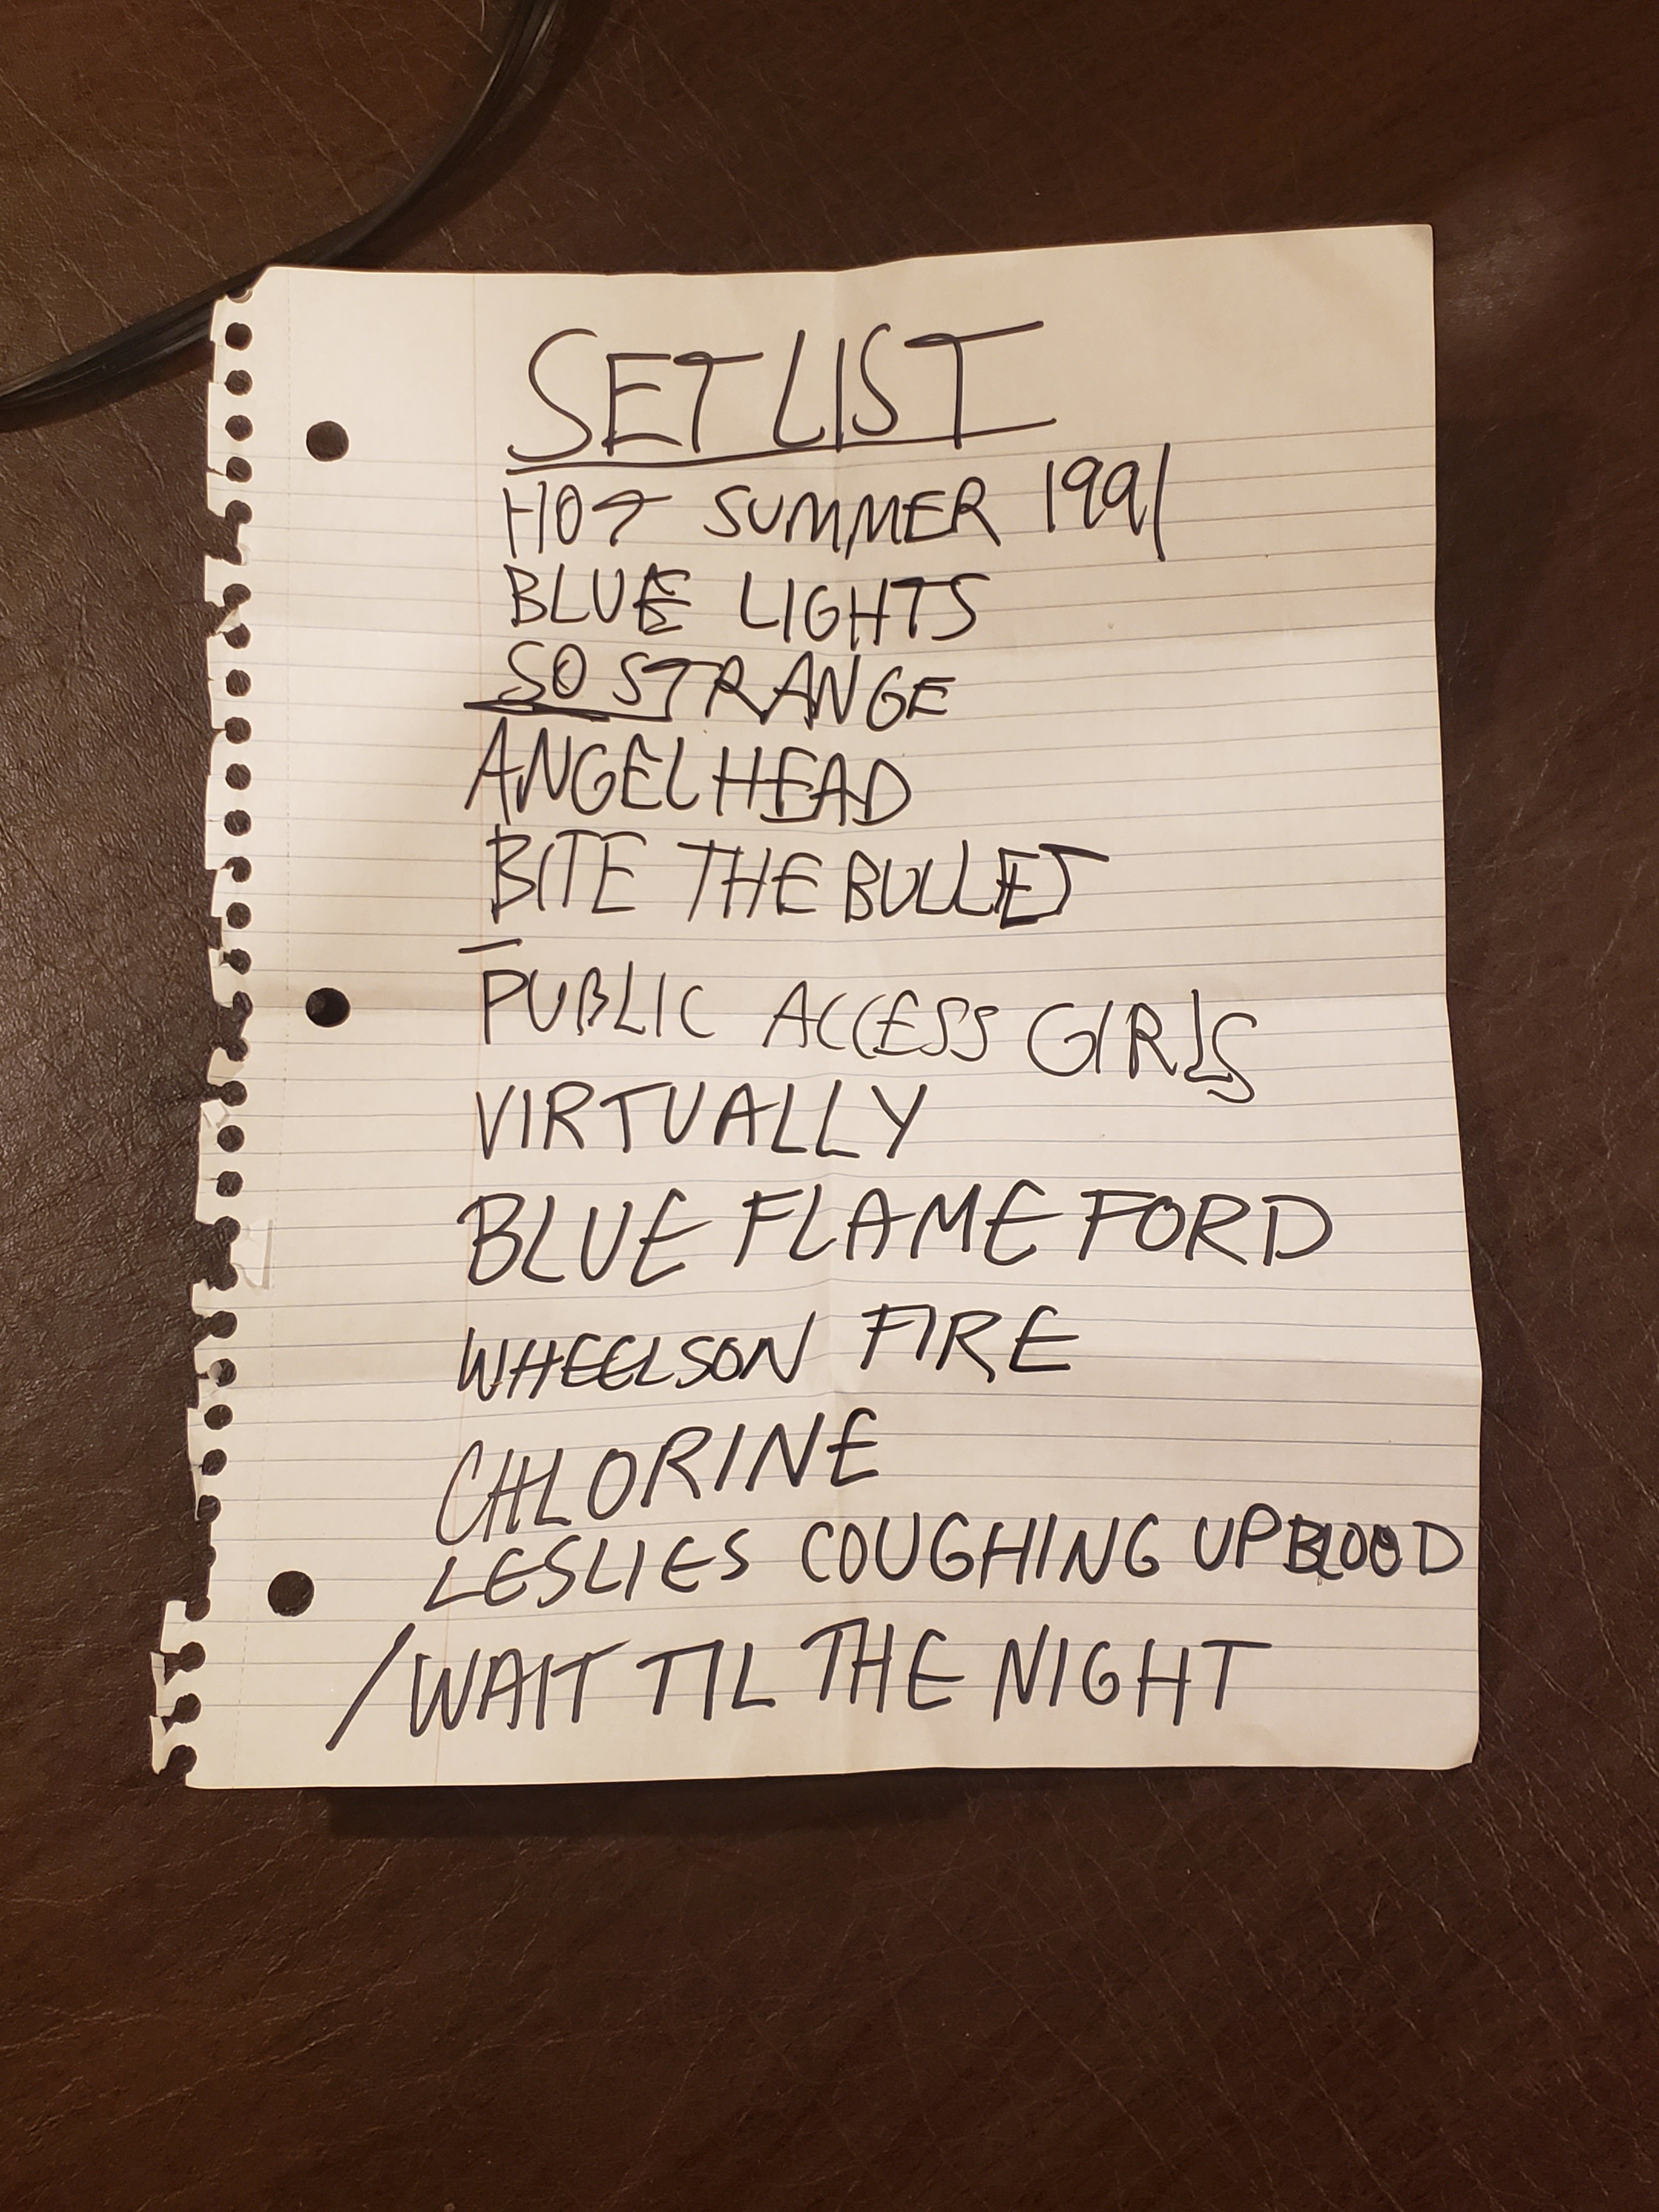 SET LIST
HOT SUMMER 1991
BLUE LIGHTS
SO STRANGE
ANGELHEAD
BITE THE BULLET
PUBLIC ACCESS GIRLS
VIRTUALLY
BLUE FLAME FORD
WHEELS ON FIRE
CHLORINE
LESLIES COUGHING UP BLOOD
/WAIT TIL THE NIGHT